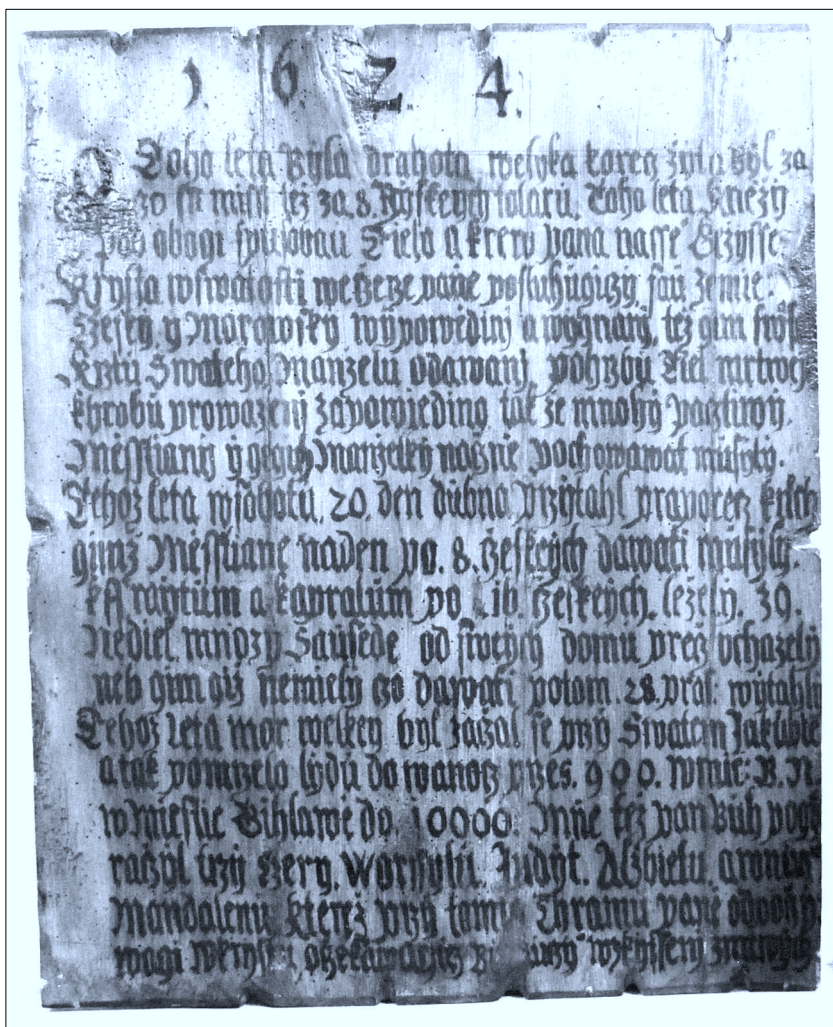 1624.
Toho leta Byla drahota welyka korecz žyta byl za
30 su missl též za 8. Ryskeych tolaru. Toho leta Kniežy
pod obogi spusobau Tielo a krew pana nasse
Krysta wswatosti weczerze pane posluhugiczy sau Zemie
Czesky y Morawsky wypowiediny a wyhnany, též gim
Krztu Swateho Manželu odawany pohrzbu Tiel mrtwch
khrobu prowazeny zapowiedino tak že mnohy poctiwy
Miesstiany y gegich Manzelky nacznie pochowawat musyly.
Tehoz leta wsobotu 20. den dubna przytahl praporecz
gimž Miesstiane naden po. 8. czeskeych dawati musyly.
raytum a kapralum po 16 czeskeych. leżely. 39.
Nediel mnozy Sausede od sweych domu precz ochazely
neb gim giż nemiely czo dawati potom 28. wytahla
Tehoz leta mor welkey byl zaczal se przy Swatem Jakubie
a tak pomrzelo lydu do wanocz przes. 900. wmie: B. N.
wmiestie Gihlawie do. 10000. Mnie tez pan Buh
raczyl trzy czery. Worssylu. Judyt. Alzbietu.
Mandalenu kterež przy tomto Chramu panie
wkrystu oczekawagicz wzkyssseny